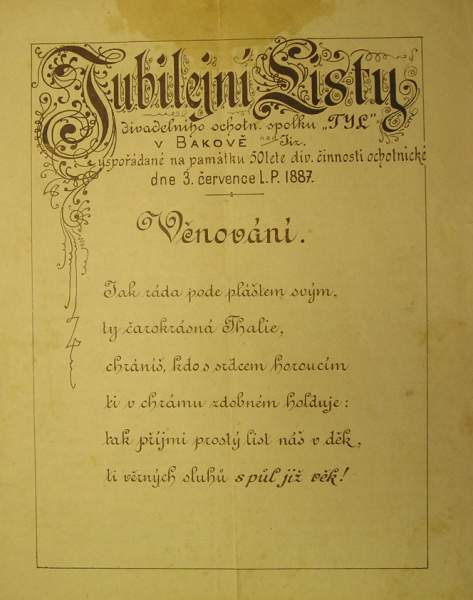 Jubilejní Listy
divadelního ochotn. spolku „TYL”
v BAKOVĚ nad Jiz.
uspořádané na památku 50leté div. činnosti ochotnické
dne 3. července L.P. 1887.
Věnování.
Jak ráda pode pláštem svým,
ty čarokrásná Thalie,
chráníš, kdo s srdcem horoucím
ti v chrámu zdobném holduje:
tak příjmi prostý list náš v děk,
ti věrných sluhů s půl již věk!